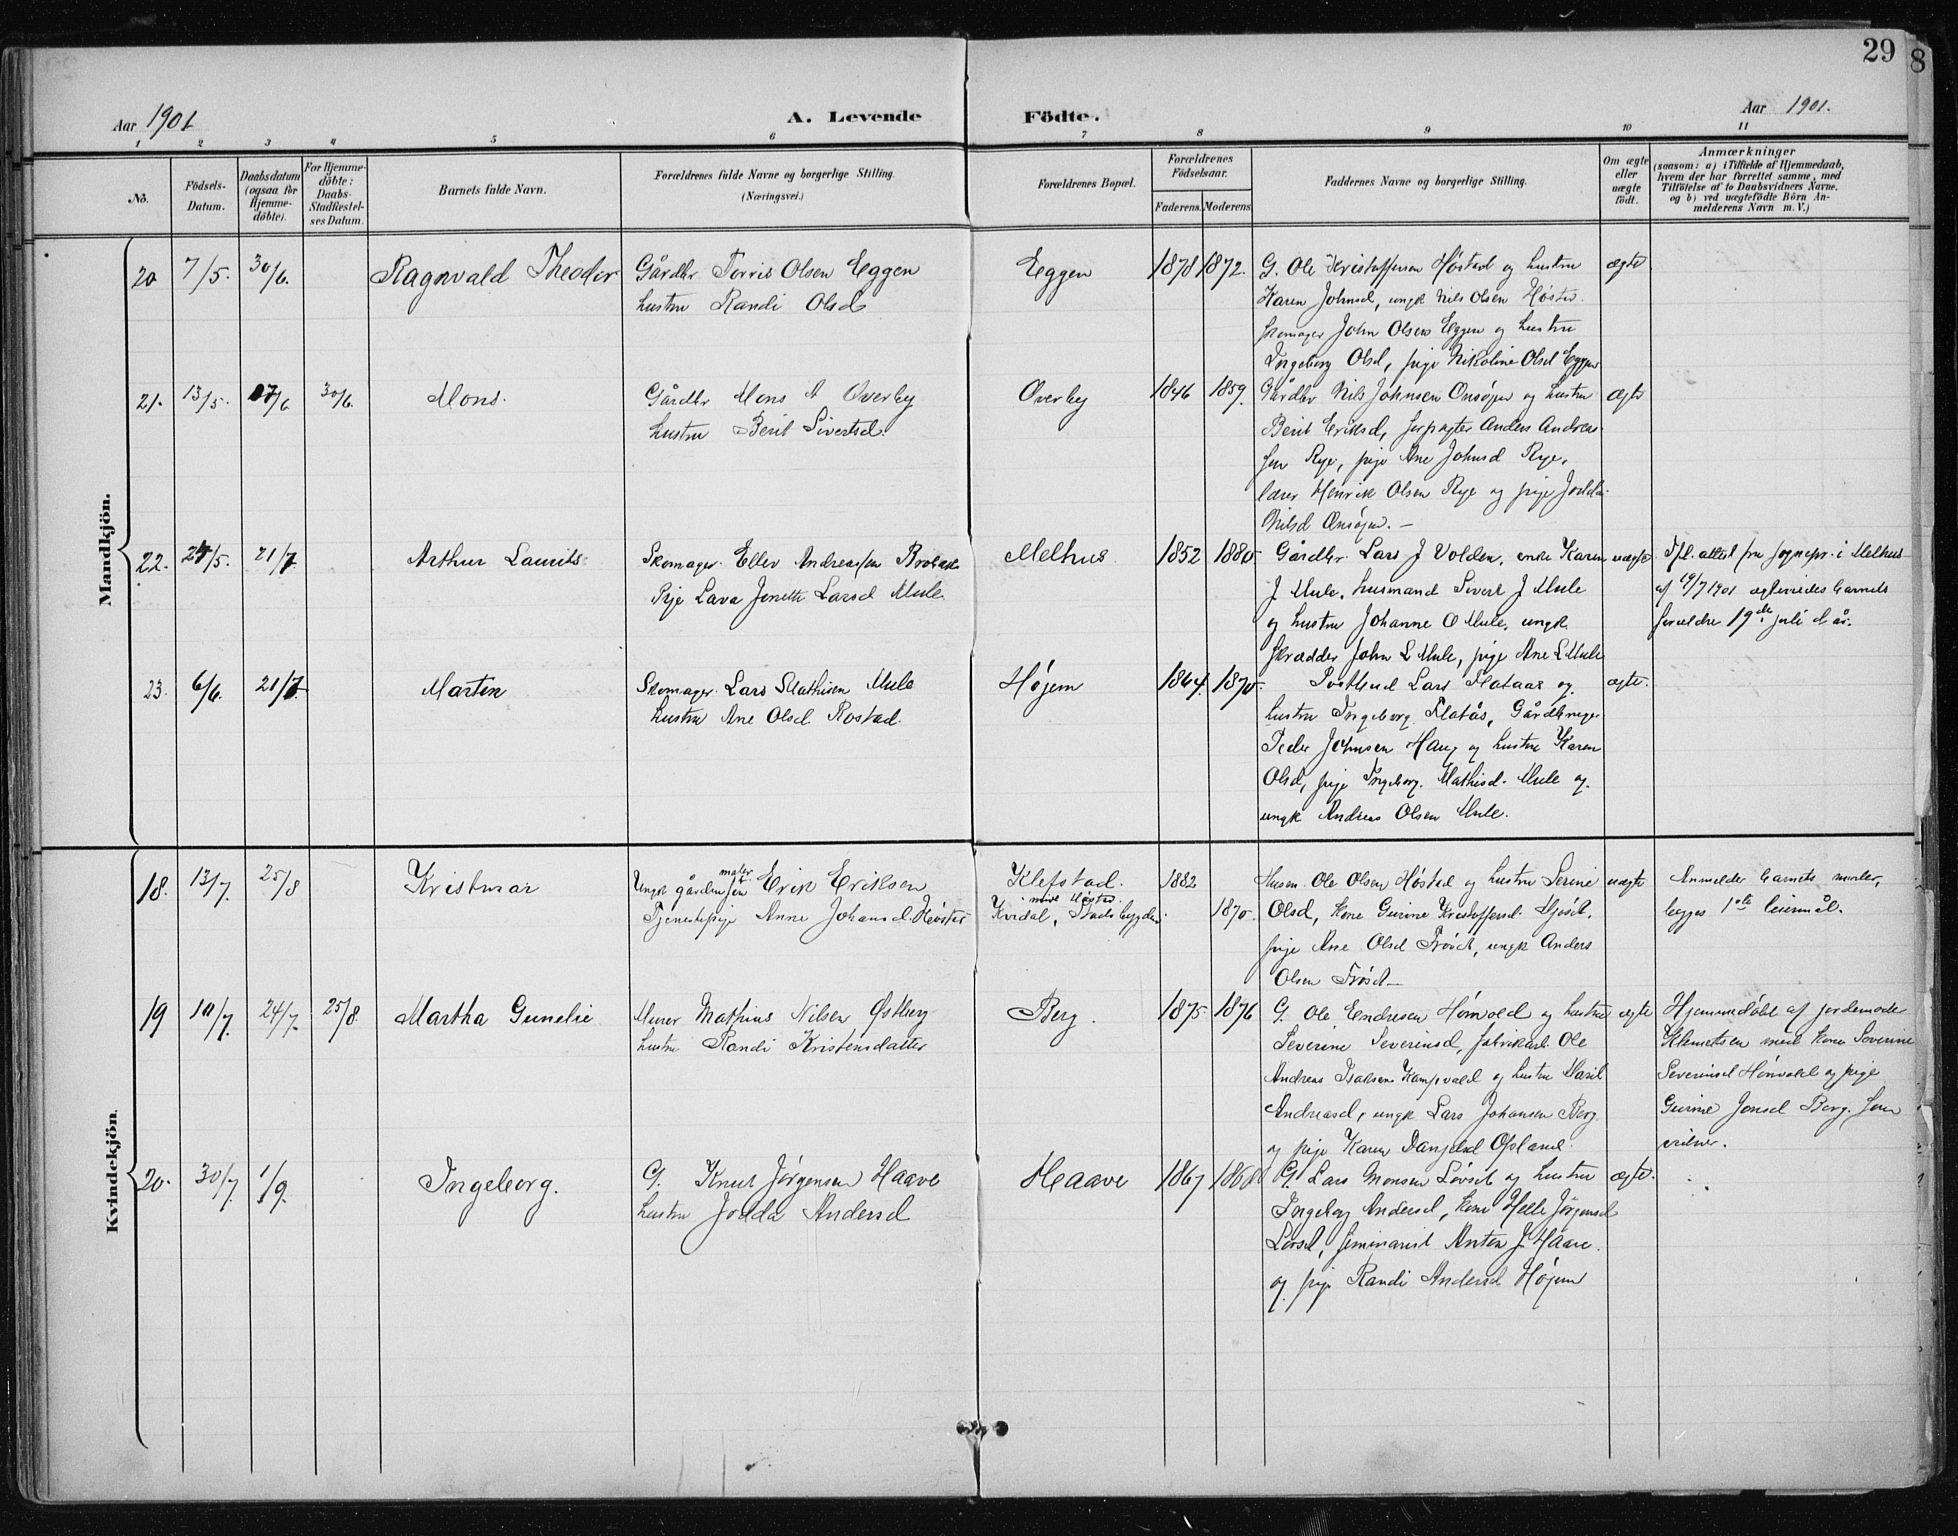 29
8
Aar 1901
A. Levende Födte.
Aar 1901.
1 2 3 4 5 6 7 8 9 10 11
No.
Födsels-Datum.
Daabsdatum (ogsaa for Hjemme-döbte).
For Hjemme-döbte: Daabs Stadfæstel-ses Datum.
Barnets fulde Navn.
Forældrenes fulde Navne og borgerlige Stilling. (Næringsvei.)
Forældrenes Bopæl.
Forældrenes Födselsaar.
Faderens. Moderens
Faddernes Navne og borgerlige Stilling.
Om ægte eller uægte födt.
Anmærkninger
(saasom: a) i Tilfælde af Hjemmedaab,
hvem der har forrettet samme, med
Tilföielse af to Daabsvidners Navne.
og b) ved uægtefödte Börn An-
melderens Navn m. V.)
Mandkjön.
20 7/5. 30/6. Ragnvald Theodor
Gårdbr Torris Olsen Eggen
hustru Randi Olsd
Eggen 1878 1872.
G. Ole Kristoffersen Høstad og hustru
Karen Johnsd, ungk Nils Olsen Høstad
skomager John Olsen Eggen og hustru
Ingeborg Olsd, pige Nikoline Olsd Eggen
ægte
21. 13/5. 17/6 30/6. Mons.
Gårdbr Mons A Overby
hustru Berit Sivertsd.
Overby 1846 1859.
Gårdbr Nils Johnsen Onsøyen og hustru
Berit Eriksd, forpagter Anders Andreas-
sen Rye, pige Ane Johnsd Rye,
lærer Henrik Olsen Rye og pige
Nilsd Onsøyen. —
ægte
22. 24/5. 21/7 Arthur Laurits
Skomager Eller Andreassen
Pige Lava Jenette Larsd Mule
Melhus 1852 1880
Gårdbr. Lars J Volden, enke Karen
J Mule, husmand Sivert J Mule
og hustru Johanne O Mule, ungk
skrædder John L Mule, pige Ane L Mule
uægte
Ifl. attest fra sognepr. i Melhus
af 19/7 1901 ægteviedes barnets
forældre 19de juli d. år.
23. 6/6. 21/7. Marten
Skomager Lars Mathisen Mule
hustru Ane Olsd Rostad.
Højem 1864. 1870.
Lars Flataas og
hustru Ingeborg Flatås, Gårdbruger
Peder Johnsen Haug og hustru Karen
Olsd, pige Ingeborg Mathisd. Mule og
ungk Andreas Olsen Mule.
ægte.
Kvindekjön.
18. 13/7. 25/8 Kristmar
Ungk gårdmandsøn Erik Eriksen
Tjenestepige Anne Johansd Høistad
Klefstad.
Kvidal, Stadsbygden.
1882
1870.
Husm. Ole Olsen Høstad og hustru Serine
Olsd, kone Gurine Kristoffersd.
pige Ane Olsd Trøset, ungk Anders
Olsen Trøset —
uægte
Anmelder barnets moder,
begges 1ste leiermål.
19 10/7. 24/7. 25/8. Martha Gunelie
Murer Mathias Nilsen Østberg
hustru Randi Kristensdatter
Berg. 1875 1876
G. Ole Endresen Hønvold og hustru
Severine Severinsd, fabrikarb. Ole
Andreas Isaksen Kampvold og hustru Marit
Andreasd, ungk Lars Johansen Berg
og pige Karen Danielsd Opland.
ægte
Hjemmedøbt af jordemoder
Klemetsen med kone Severine
Severinsd Hønvold og pige
Gurine Jonsd Berg som
vidner.
20. 30/7. 1/9. Ingeborg.
G. Knut Jørgensen Haave
hustru Jodda Andersd
Haave 1867 1868
G. Lars Monsen Løvset og hustru
Ingeborg Andersd, kone Helle Jørgensd
Løvset, seminarist Anton J Haave.
og pige Randi Andersd Højem
ægte.